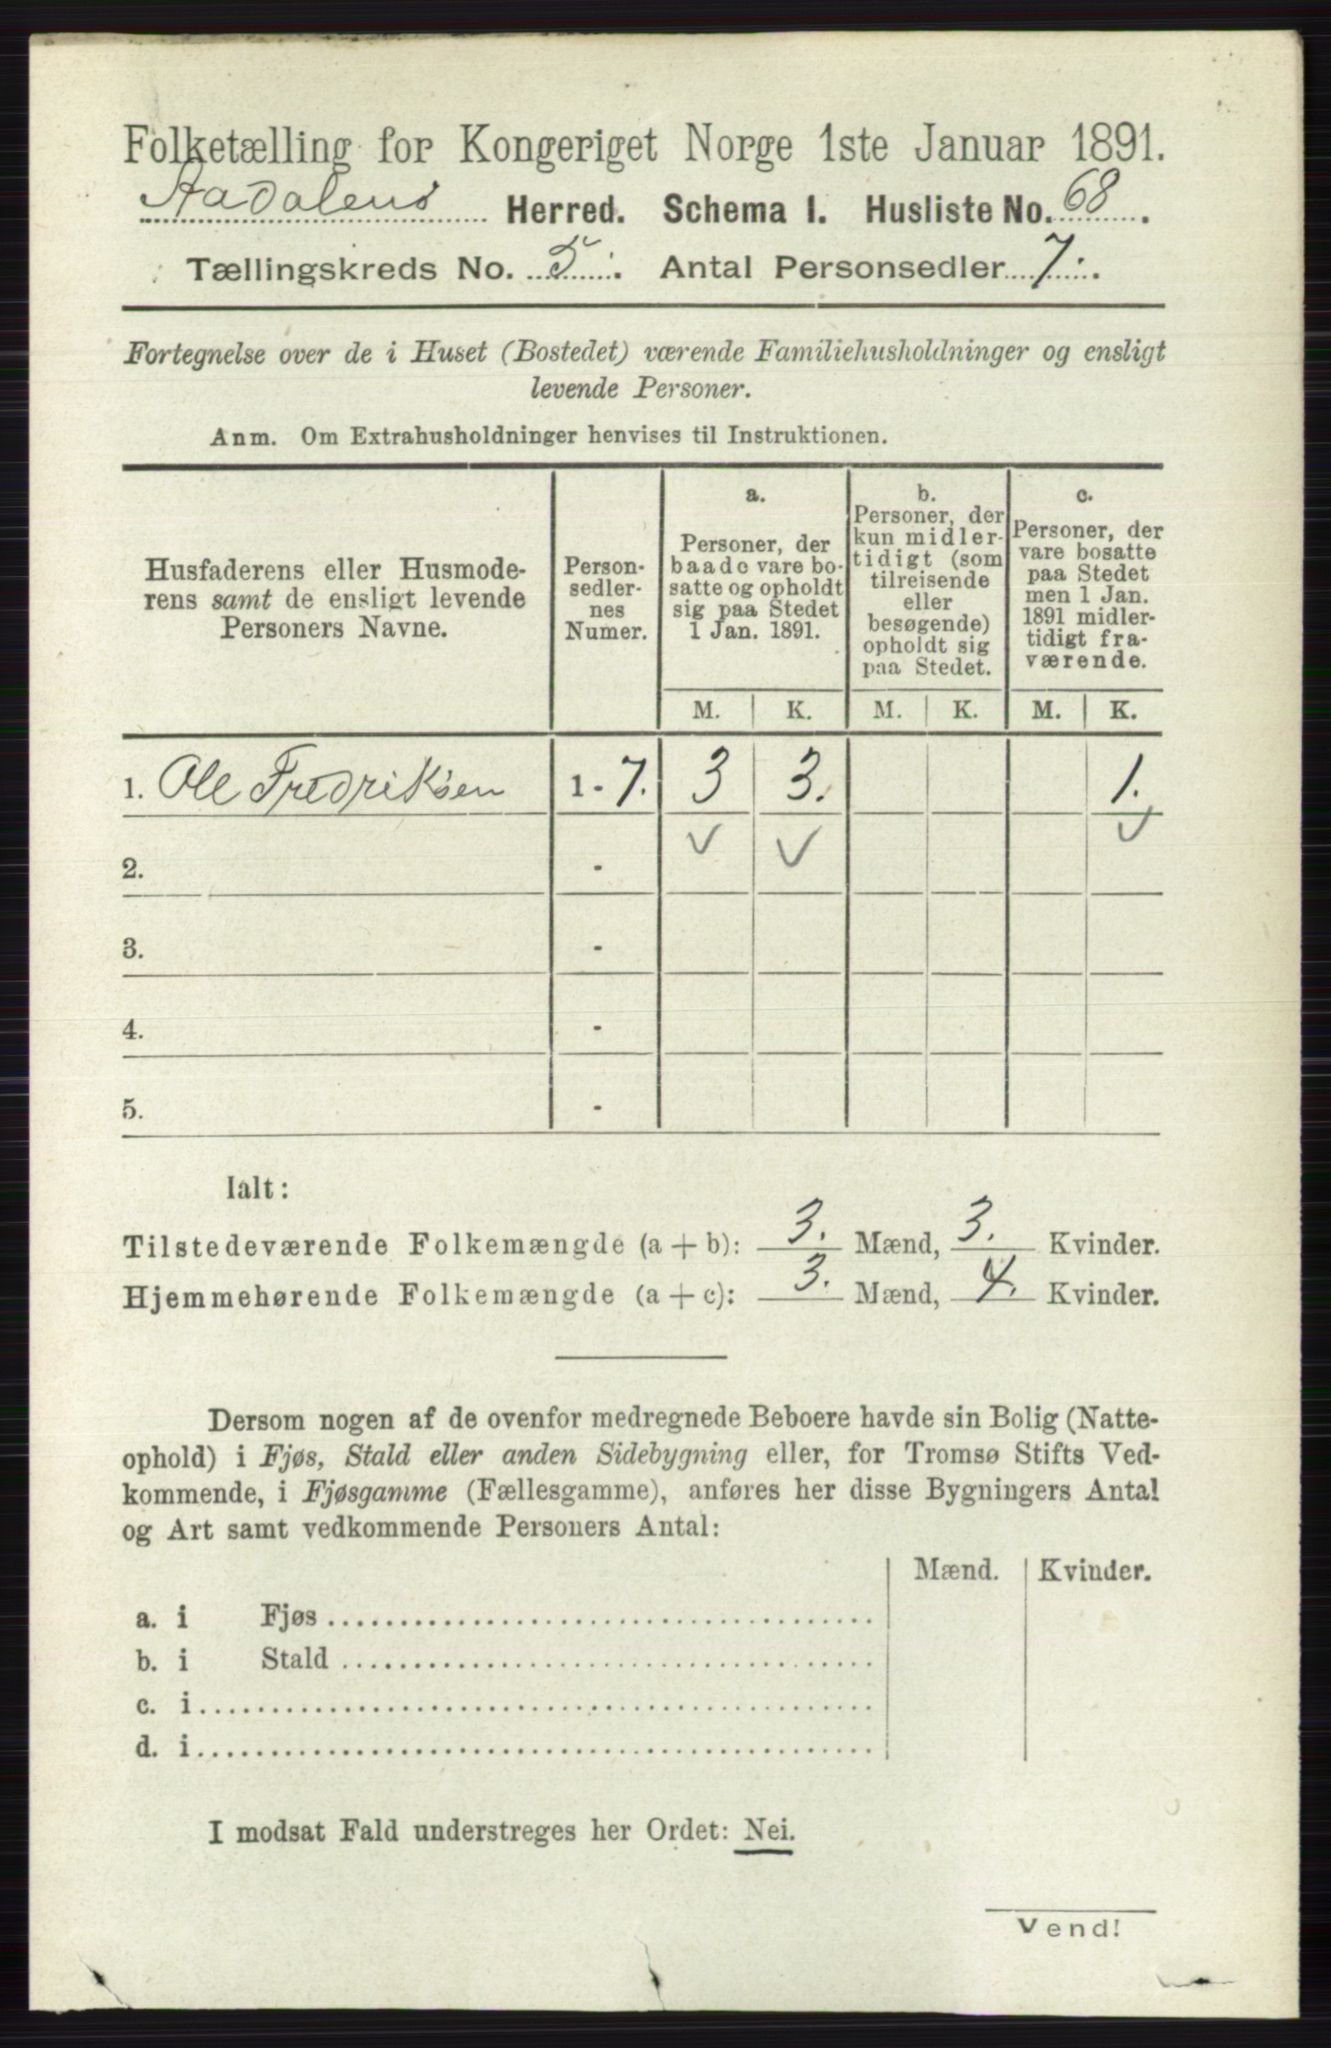 Folketælling for Kongeriget Norge 1ste Januar 1891.
Aadalens Herred. Schema I. Husliste No. 68.
Tællingskreds No. 5. Antal Personsedler 7.
Fortegnelse over de i Huset (Bostedet) værende Familiehusholdninger og ensligt
levende Personer.
Anm. Om Extrahusholdninger henvises til Instruktionen.
Husfaderens eller Husmode-
rens samt de ensligt levende
Personers Navne.
Person-
sedler-
nes
Numer.
a.
Personer, der
baade vare bo-
satte og opholdt
sig paa Stedet
1 Jan. 1891.
b.
Personer, der
kun midler-
tidigt (som
tilreisende
eller
besøgende)
opholdt sig
paa Stedet.
c.
Personer, der
vare bosatte
paa Stedet
men 1 Jan.
1891 midler-
tidigt fra-
værende.
M. K. M. K. M. K.
1. Ole Fredriksen 1 - 7. 3 3. 1.
✓ ✓ ✓
2. -
3. -
4. -
5. -
Ialt:
Tilstedeværende Folkemængde (a + b): 3. Mænd, 3. Kvinder.
Hjemmehørende Folkemængde (a + c): 3. Mænd, 4. Kvinder.
Dersom nogen af de ovenfor medregnede Beboere havde sin Bolig (Natte-
ophold) i Fjøs, Stald eller anden Sidebygning eller, for Tromsø Stifts Ved-
kommende, i Fjøsgamme (Fællesgamme), anføres her disse Bygningers Antal
og Art samt vedkommende Personers Antal:
Mænd. Kvinder.
a. i Fjøs
b. i Stald
c. i
d. i
I modsat Fald understreges her Ordet: Nei.
Vend!